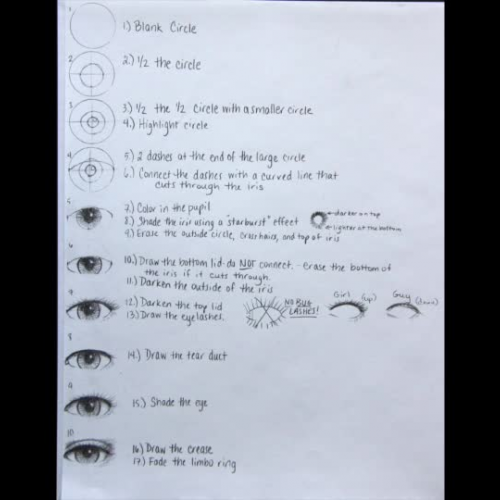 1
1) Blank Circle
2
2.) 1/2 the circle
3
3) 1/2 the 1/2 circle with a smaller circle
4.) Highlight circle
4
5) 2 dashes at the end of the large circle
6.) Connect the dashes with a curved line that
cuts through the iris
5
7.) Color in the pupil
8.) Shade the iris using a "starburst" effect
darker on top
lighter at the bottom
9.) Erase the outside circle, crosshairs, and top of iris
6
10.) Draw the bottom lid do NOT connect. Erase the bottom of
the iris if it cuts through.
11.) Darken the outside of the iris
7
12.) Darken the top lid
13.) Draw the eyelashes.
NO BUG
LASHES!
Girl
(up)
Guy
(down)
8
14.) Draw the tear duct
9
15.) Shade the eye
10
16.) Draw the crease
17.) Fade the limbo ring